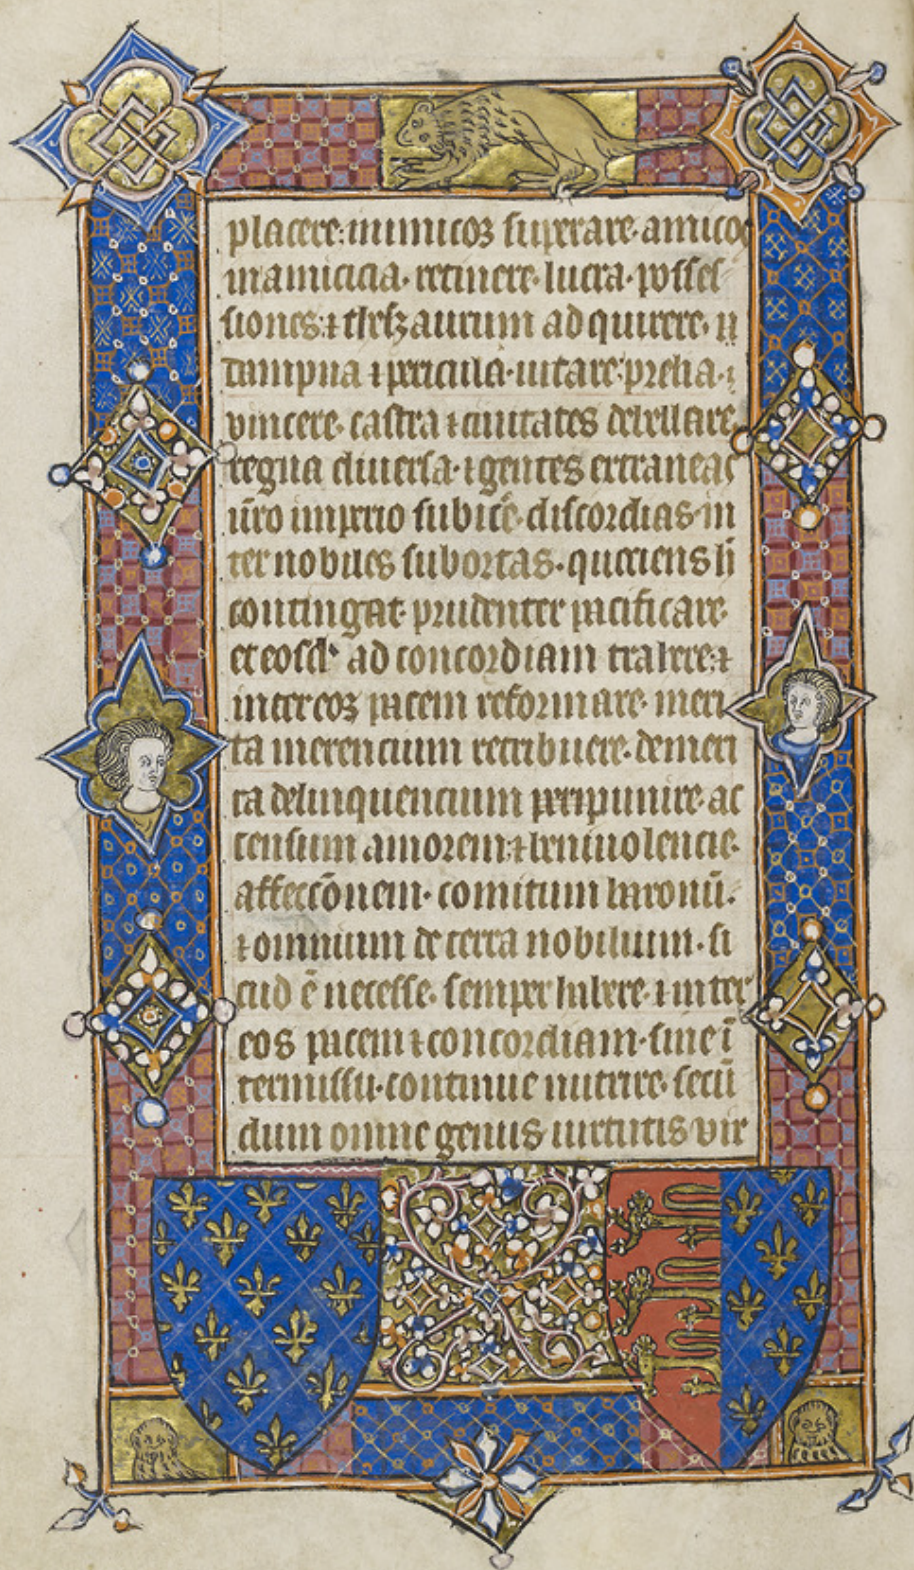 placere: inimicoꝝ superare· amicos
in amicicia· retinere· lucra· posses
siones: ⁊ thesaurum adquirere·
dampna ⁊ pericula· uitare: prelia· ⁊
vincere· castra ⁊ ciuitates debellare·
regna diuersa· ⁊ gentes extraneas
ūro imperio subicē· discordias· in
ter nobiles subortas· quociens si
contingat· prudenter pacificare·
et eosdꝫ ad concordiam trahere: ⁊
inter eoꝝ pacem reformare· meri
ta merencium retribuere· demeri
ta delinquencium perpunire· ac
censum amorem: ⁊ beniuolencie·
affeccōnem· comitum baronū·
⁊ omnium de terra nobilium· si
cud ē necesse· semper habere· ⁊ inter
eos pacem ⁊ concordiam· sine ī
termissu· continue nutrire· secū
dum omne genus uirtutis vir